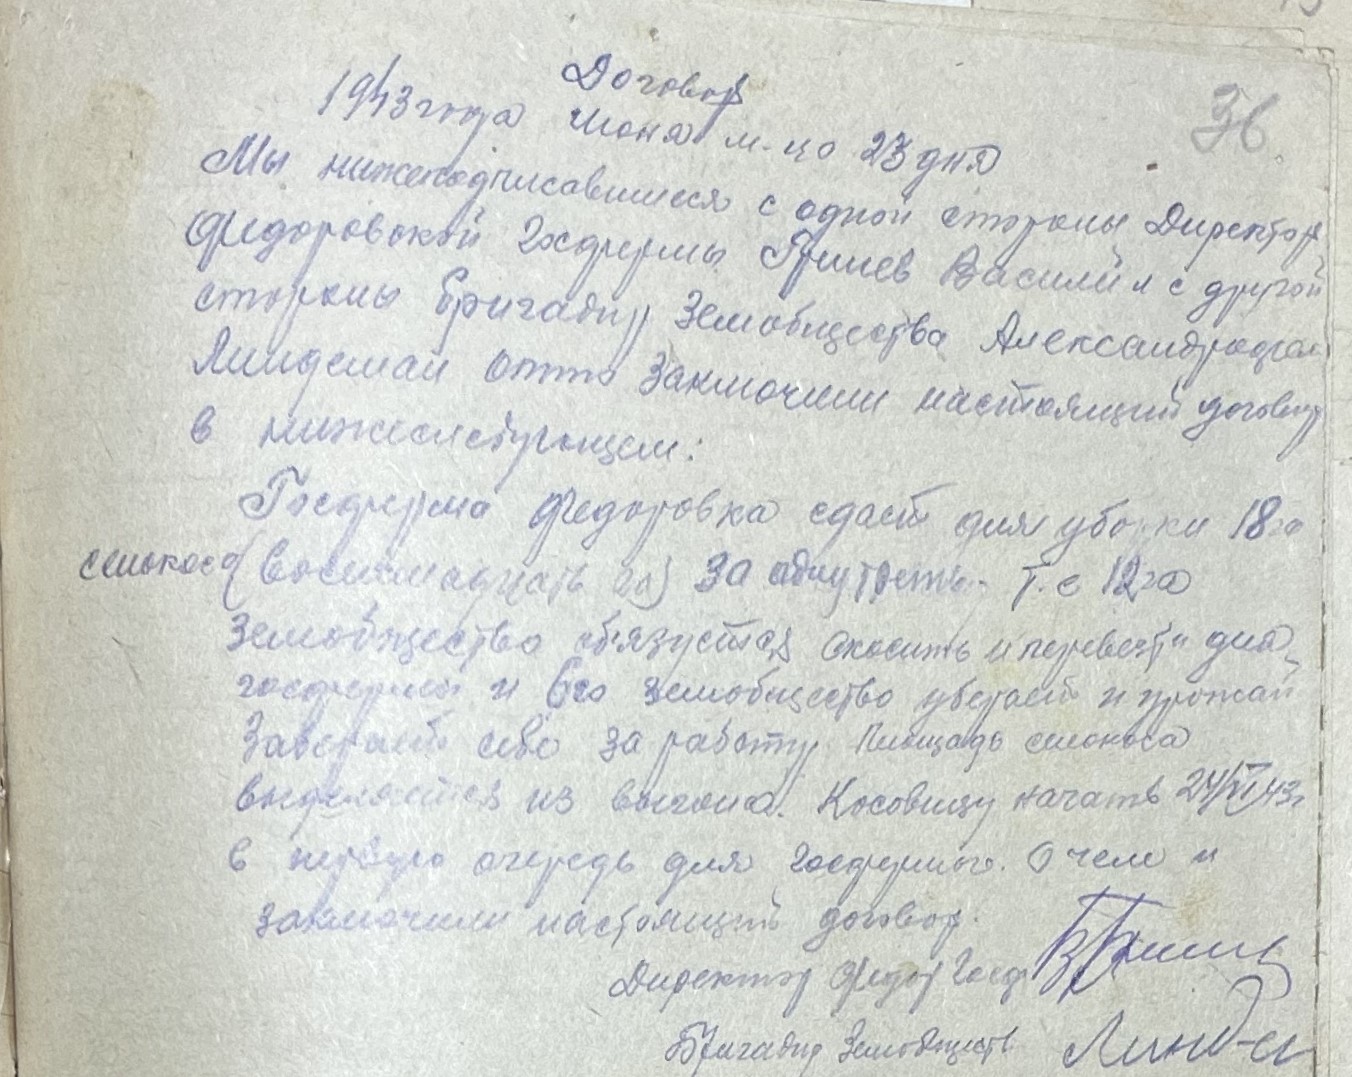 36
Договор
1943 года Июня м-ца 23 дня
Мы нижеподписавшиеся с одной стороны Директор
Федоровской Госфермы Гришев Василий и с другой
стороны бригадир Земобщества Александродгай
Линдеман Отто заключили настоящий договор
в нижеследующем:
Госферма Федоровка сдает для уборки 18 га
сенокоса (восемнадцать га) за одну треть. т.е 12 га
Земобщество обязуется скосить и перевезти для
госфермы и 6 га земобщество убирает и урожай
забирает себе за работу. Площадь сенокоса
выделяется из выгона. Косовицу начать 24/VI 43 г
в первую очередь для госфермы. О чем и
заключили настоящий договор.
Директор Федор Госф
Бригадир Земобществ